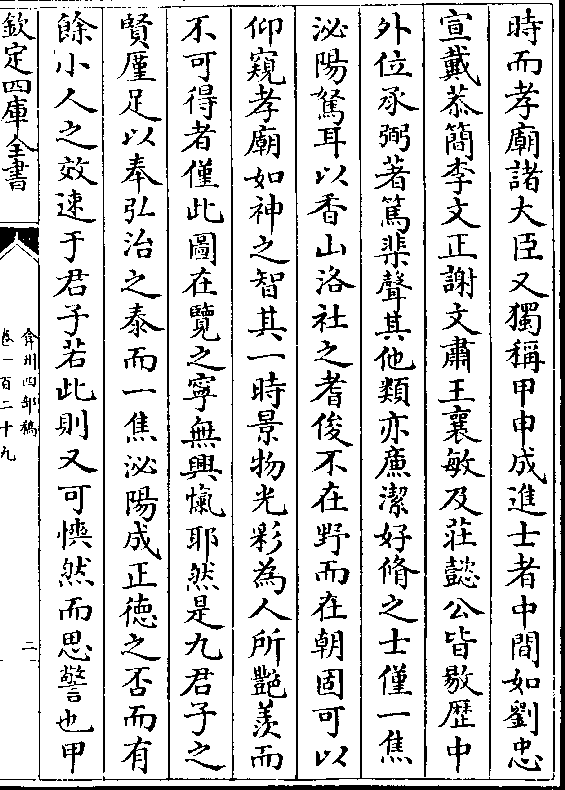 時而孝廟諸大臣又獨稱甲申成進士者中間如劉忠
宣戴恭簡李文正謝文肅王襄敏及莊懿公皆敭歷中
外位承弼著篤棐聲其他類亦廉潔好脩之士僅一焦
泌陽駑耳以香山洛社之耆俊不在野而在朝固可以
仰窺孝廟如神之智其一時景物光彩為人所艷羨而
不可得者僅此圖在覽之寧無興愾耶然是九君子之
賢厪足以奉弘治之泰而一焦泌陽成正德之否而有
餘小人之效速于君子若此則又可懊然而思警也甲
欽定四庫全書
弇州四部稿
卷一百二十九
二